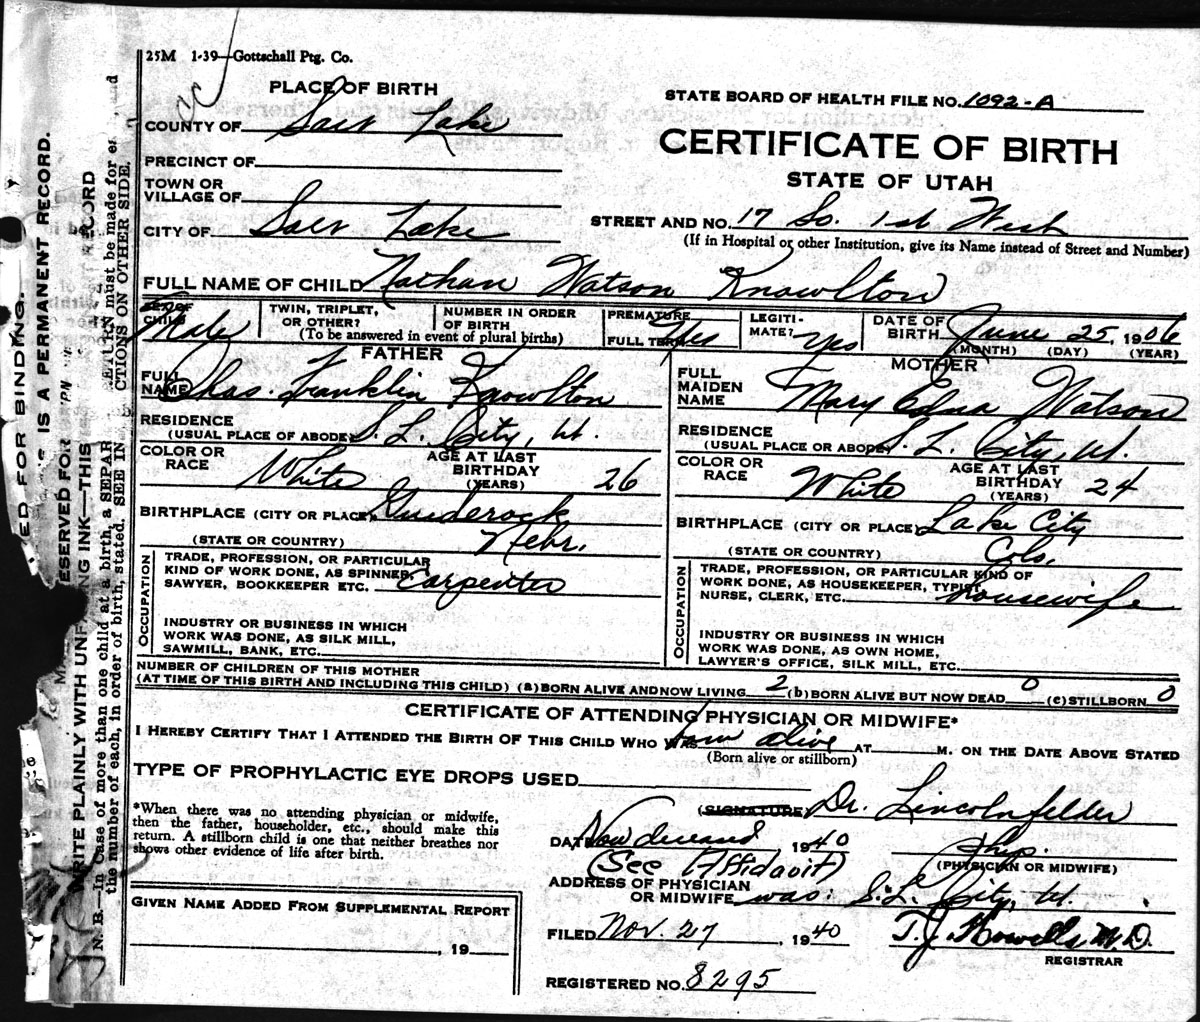 25M 1-39—Gottschall Ptg. Co.
PLACE OF BIRTH
STATE BOARD OF HEALTH FILE NO. 1092-A
COUNTY OF Salt Lake
CERTIFICATE OF BIRTH
PRECINCT OF
STATE OF UTAH
TOWN OR
VILLAGE OF
CITY OF Salt Lake
STREET AND NO. 17 So. 1st West
(If in Hospital or other Institution, give its Name instead of Street and Number)
FULL NAME OF CHILD Nathan Watson Knowlton
SEX OF
CHILD Male
TWIN, TRIPLET,
OR OTHER?
NUMBER IN ORDER
OF BIRTH
(To be answered in event of plural births)
PREMATURE
FULL TERM Yes
LEGITI-
MATE? Yes
DATE OF
BIRTH June 25, 1906
(MONTH) (DAY) (YEAR)
FATHER
FULL
NAME Chas. Franklin Knowlton
RESIDENCE
(USUAL PLACE OF ABODE) S. L. City, Ut.
COLOR OR
RACE White
AGE AT LAST
BIRTHDAY
(YEARS) 26
BIRTHPLACE (CITY OR PLACE) Guiderock
(STATE OR COUNTRY) Nebr.
OCCUPATION
TRADE, PROFESSION, OR PARTICULAR
KIND OF WORK DONE, AS SPINNER,
SAWYER, BOOKKEEPER ETC. Carpenter
INDUSTRY OR BUSINESS IN WHICH
WORK WAS DONE, AS SILK MILL,
SAWMILL, BANK, ETC.
MOTHER
FULL
MAIDEN
NAME Mary Edna Watson
RESIDENCE
(USUAL PLACE OR ABODE) S. L. City, Ut.
COLOR OR
RACE White
AGE AT LAST
BIRTHDAY
(YEARS) 24
BIRTHPLACE (CITY OR PLACE) Lake City
(STATE OR COUNTRY) Colo.
OCCUPATION
TRADE, PROFESSION, OR PARTICULAR KIND OF
WORK DONE, AS HOUSEKEEPER, TYPIST,
NURSE, CLERK, ETC. Housewife
INDUSTRY OR BUSINESS IN WHICH
WORK WAS DONE, AS OWN HOME,
LAWYER'S OFFICE, SILK MILL, ETC.
NUMBER OF CHILDREN OF THIS MOTHER
(AT TIME OF THIS BIRTH AND INCLUDING THIS CHILD) (a) BORN ALIVE AND NOW LIVING 2 (b) BORN ALIVE BUT NOW DEAD 0 (c) STILLBORN 0
CERTIFICATE OF ATTENDING PHYSICIAN OR MIDWIFE*
I HEREBY CERTIFY THAT I ATTENDED THE BIRTH OF THIS CHILD WHO WAS born alive AT M. ON THE DATE ABOVE STATED
(Born alive or stillborn)
TYPE OF PROPHYLACTIC EYE DROPS USED
*When there was no attending physician or midwife,
then the father, householder, etc., should make this
return. A stillborn child is one that neither breathes nor
shows other evidence of life after birth.
(SIGNATURE) Dr. Lincolnfelder
DATE Now deceased 1940 Phys.
(See Affidavit) (PHYSICIAN OR MIDWIFE)
ADDRESS OF PHYSICIAN
OR MIDWIFE was: S. L. City, Ut.
GIVEN NAME ADDED FROM SUPPLEMENTAL REPORT
, 19
FILED Nov. 27, 1940 T. J. Howells M.D.
REGISTRAR
REGISTERED NO. 8295
IS A PERMANENT RECORD.
ED FOR BINDING.
ESERVED FOR
WRITE PLAINLY WITH UNFADING INK—THIS RECORD
N. B.—In case of more than one child at a birth, a SEPAR RETURN must be made for ea and
the number of each, in order of birth, stated. SEE IN CTIONS ON OTHER SIDE.